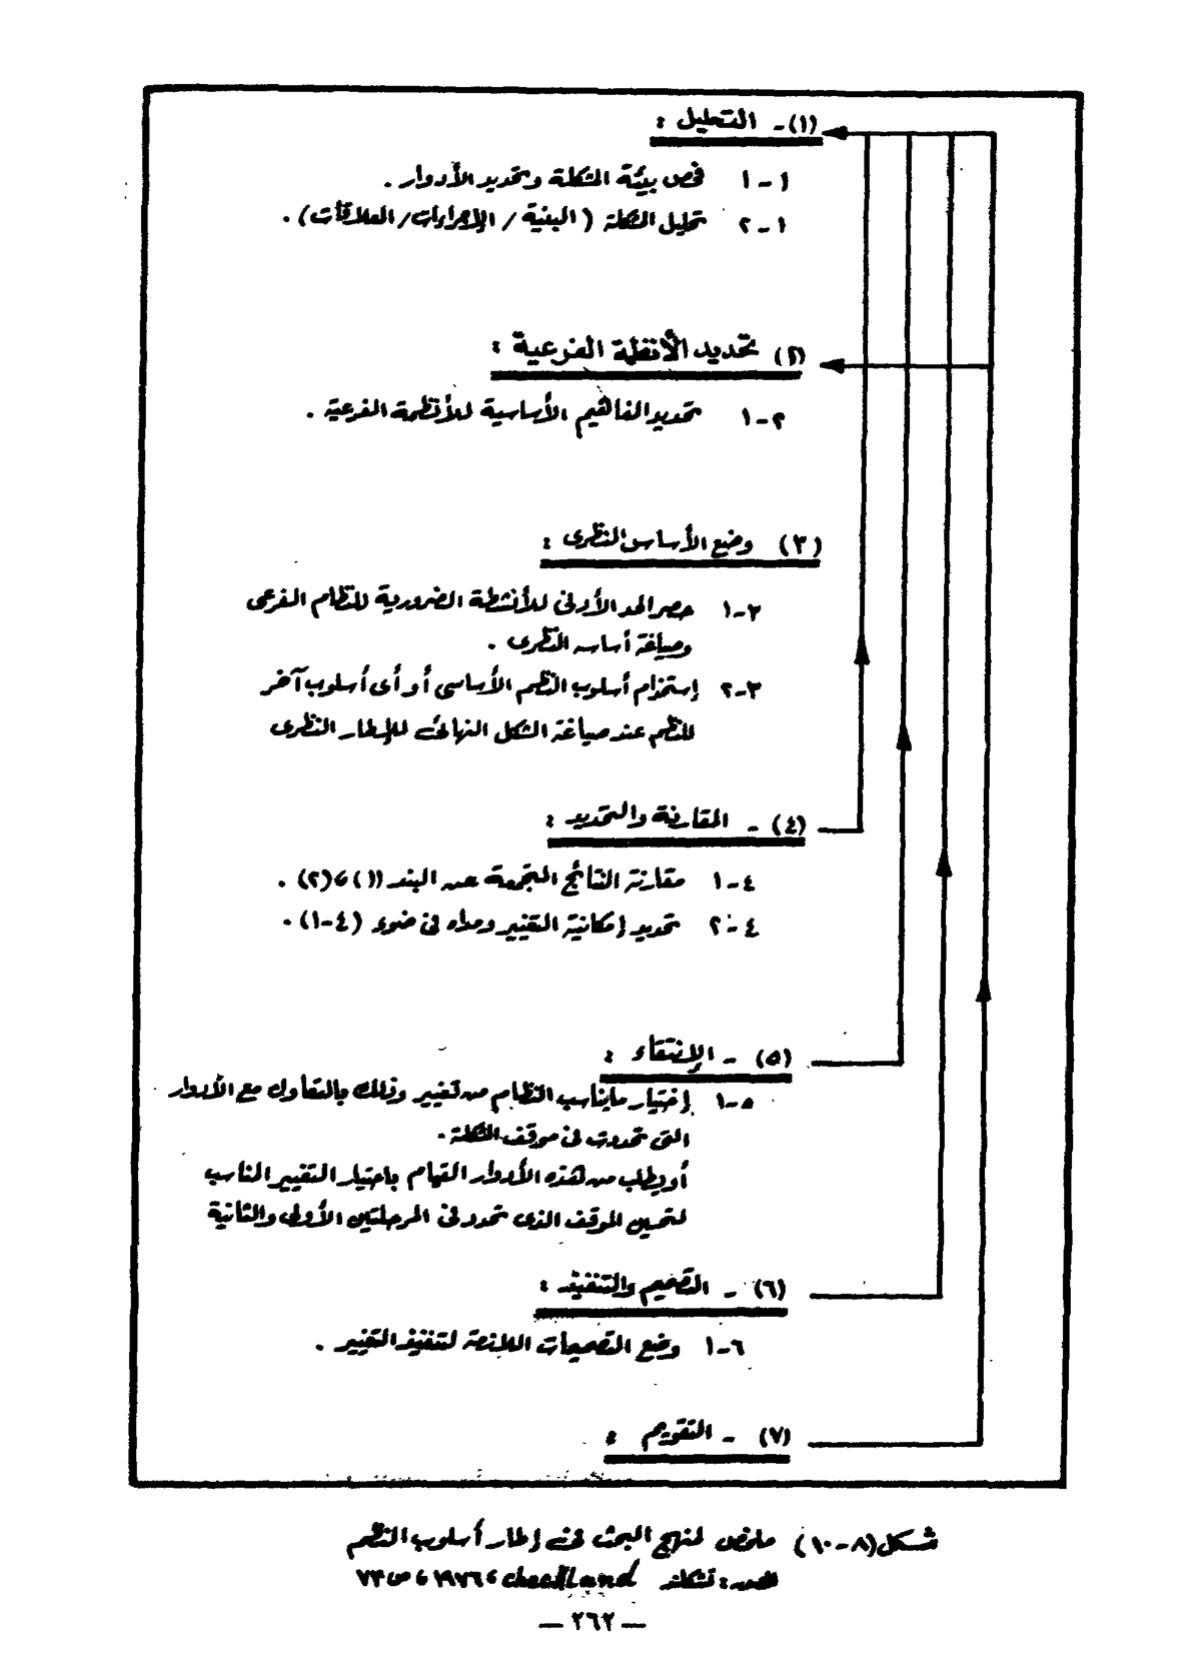 (١)- التحليل :
١-١ فحص بيئة المشكلة وتحديد الأدوار .
١-٢ تحليل المشكلة ( البنية / الإجراءات / العلاقات) .
(٢) تحديد الأنظمة الفرعية :
٢-١ تحديد المفاهيم الأساسية للأنظمة الفرعية .
(٣) وضع الأساس النظرى :
٣-١ حصر الحد الأدنى للأنشطة الضرورية للنظام الفرعى
وصياغة أساسه النظرى .
٣-٢ إستخدام أسلوب النظم الأساسى أو أى أسلوب آخر
للنظم عند صياغة الشكل النهائى للإطار النظرى
(٤) - المقارنة والتحديد :
٤-١ مقارنة النتائج المتجمعة عن البند (١)،(٢) .
٤-٢ تحديد إمكانية التغيير ومداه فى ضوء (٤-١) .
(٥) - الإنتقاء :
٥-١ إختيار مايناسب النظام من تغيير وذلك بالتعاون مع الأدوار
التى تحددت فى موقف المشكلة .
أو يطلب من هذه الأدوار القيام باختيار التغيير المناسب
لتحسين الموقف الذى تحدد فى المرحلتين الأولى والثانية
(٦) - التصميم والتنفيذ :
٦-١ وضع التصميمات اللازمة لتنفيذ التغيير .
(٧) - التقويم :
شكل (٨-١٠) ملخص لمنهج البحث فى إطار أسلوب النظم
المصدر : تشكلند checkland ، ١٩٧٦ ، ص ٧٣
— ٢٦٢ —